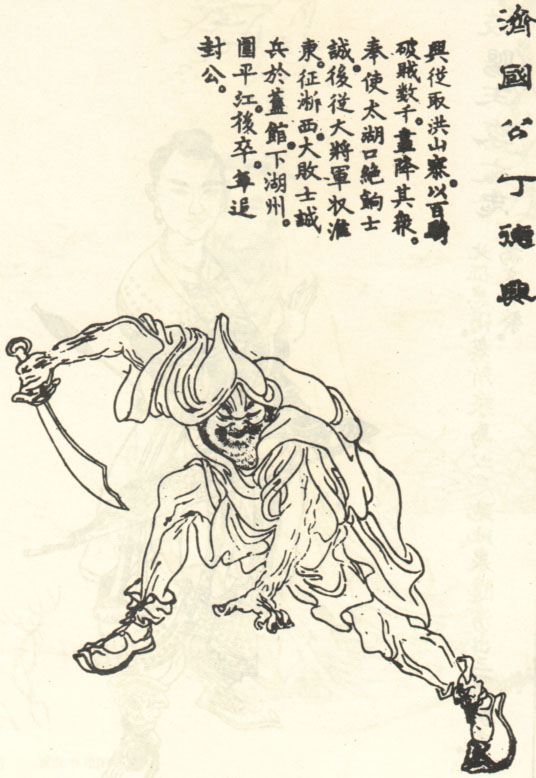 濟國公丁德興
興從取洪山寨。以百騎
破賊数千。盡降其衆。
奉使太湖口絶餉士
誠。後從大將軍収淮
東。征浙西。大敗士誠
兵於舊館。下湖州。
圍平江。後卒。年追
封公。